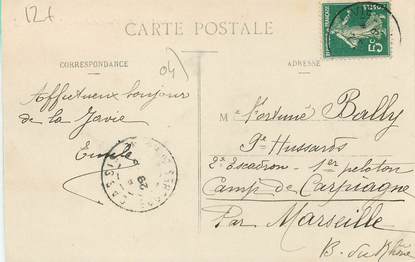 12f
CARTE POSTALE
04)
CORRESPONDANCE
ADRESSE
Affectueux bonjour
de la Javie
Emile
M r Fortuné Bally
Hussards
2e Escadron - 1er peloton
Camp de Carpiagne
Par Marseille
B. du Rhône
5c